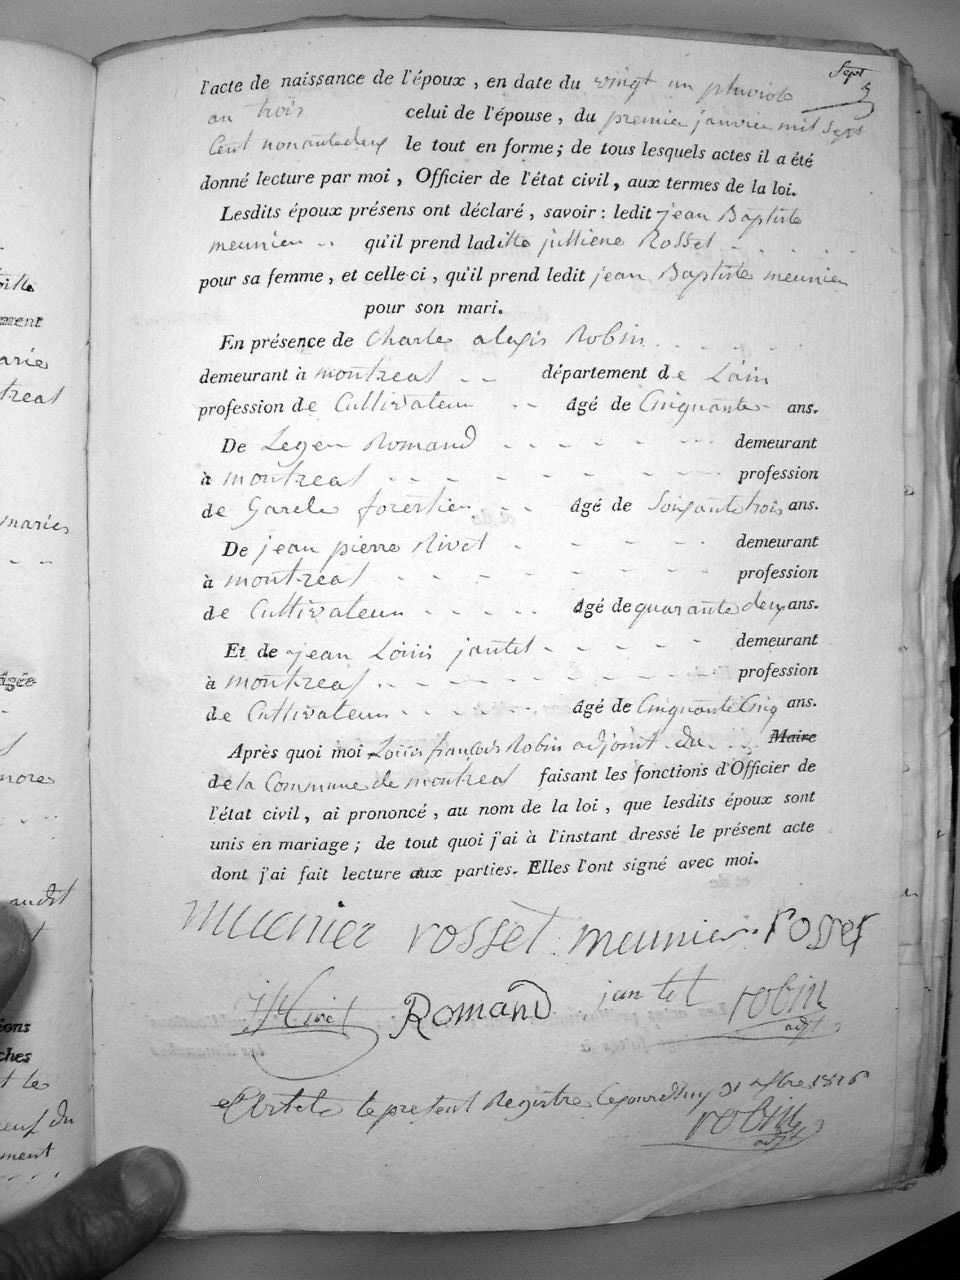 Sept
5
l'acte de naissance de l'époux, en date du vingt un pluviose
an trois celui de l'épouse, du premier janvier mil sept
Cent nonantedeux le tout en forme; de tous lesquels actes il a été
donné lecture par moi, Officier de l'état civil, aux termes de la loi.
Lesdits époux présens ont déclaré, savoir: ledit jean Baptiste
meunier qu'il prend laditte jullienne Rosset
pour sa femme, et celle-ci, qu'il prend ledit jean Baptiste meunier
pour son mari.
En présence de Charle alexis Robin
demeurant à montreal département de Lain
profession de Cultivateur âgé de Cinquante ans.
De Leger Romand demeurant
à montreal profession
de Garde forestier âgé de Soixante trois ans.
De jean pierre Nivet demeurant
à montreal profession
de Cultivateur âgé de quarante deux ans.
Et de jean Louis jantet demeurant
à montreal profession
de Cultivateur âgé de Cinquante Cinq ans.
Après quoi moi Louis françois Robin adjoint du Maire
de la Commune de montreal faisant les fonctions d'Officier de
l'état civil, ai prononcé, au nom de la loi, que lesdits époux sont
unis en mariage; de tout quoi j'ai à l'instant dressé le présent acte
dont j'ai fait lecture aux parties. Elles l'ont signé avec moi.
meunier rosset meunier rosset
Nivet Romand jantet robin
adjt
le present Registre Cejourdhuy 31 1816
robin
adjt